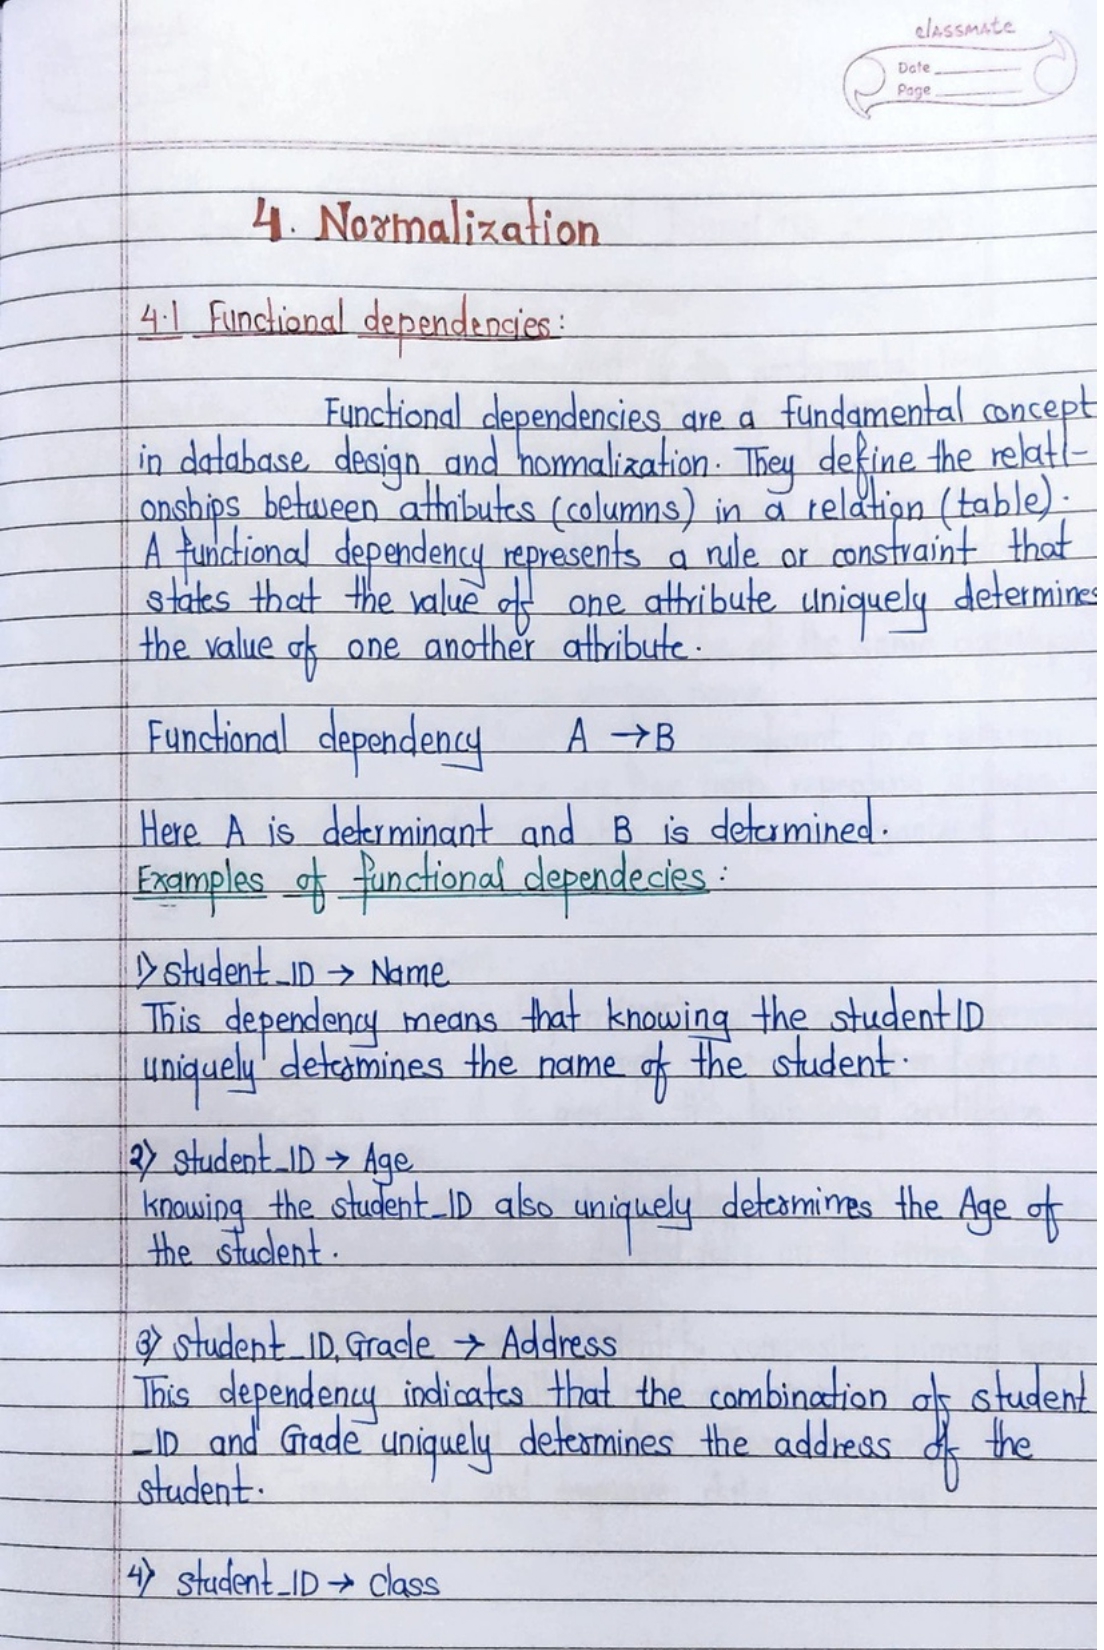 classmate
Date
Page
4. Normalization
4.1 Functional dependencies:
Functional dependencies are a fundamental concept
in database design and normalization. They define the relati-
onships between attributes (columns) in a relation (table).
A functional dependency represents a rule or constraint that
states that the value of one attribute uniquely determines
the value of one another attribute.
Functional dependency A → B
Here A is determinant and B is determined.
Examples of functional dependecies:
1) student_ID → Name
This dependency means that knowing the student ID
uniquely determines the name of the student.
2) student_ID → Age
knowing the student_ID also uniquely determines the Age of
the student.
3) student_ID, Grade → Address
This dependency indicates that the combination of student
_ID and Grade uniquely determines the address of the
student.
4) student_ID → class